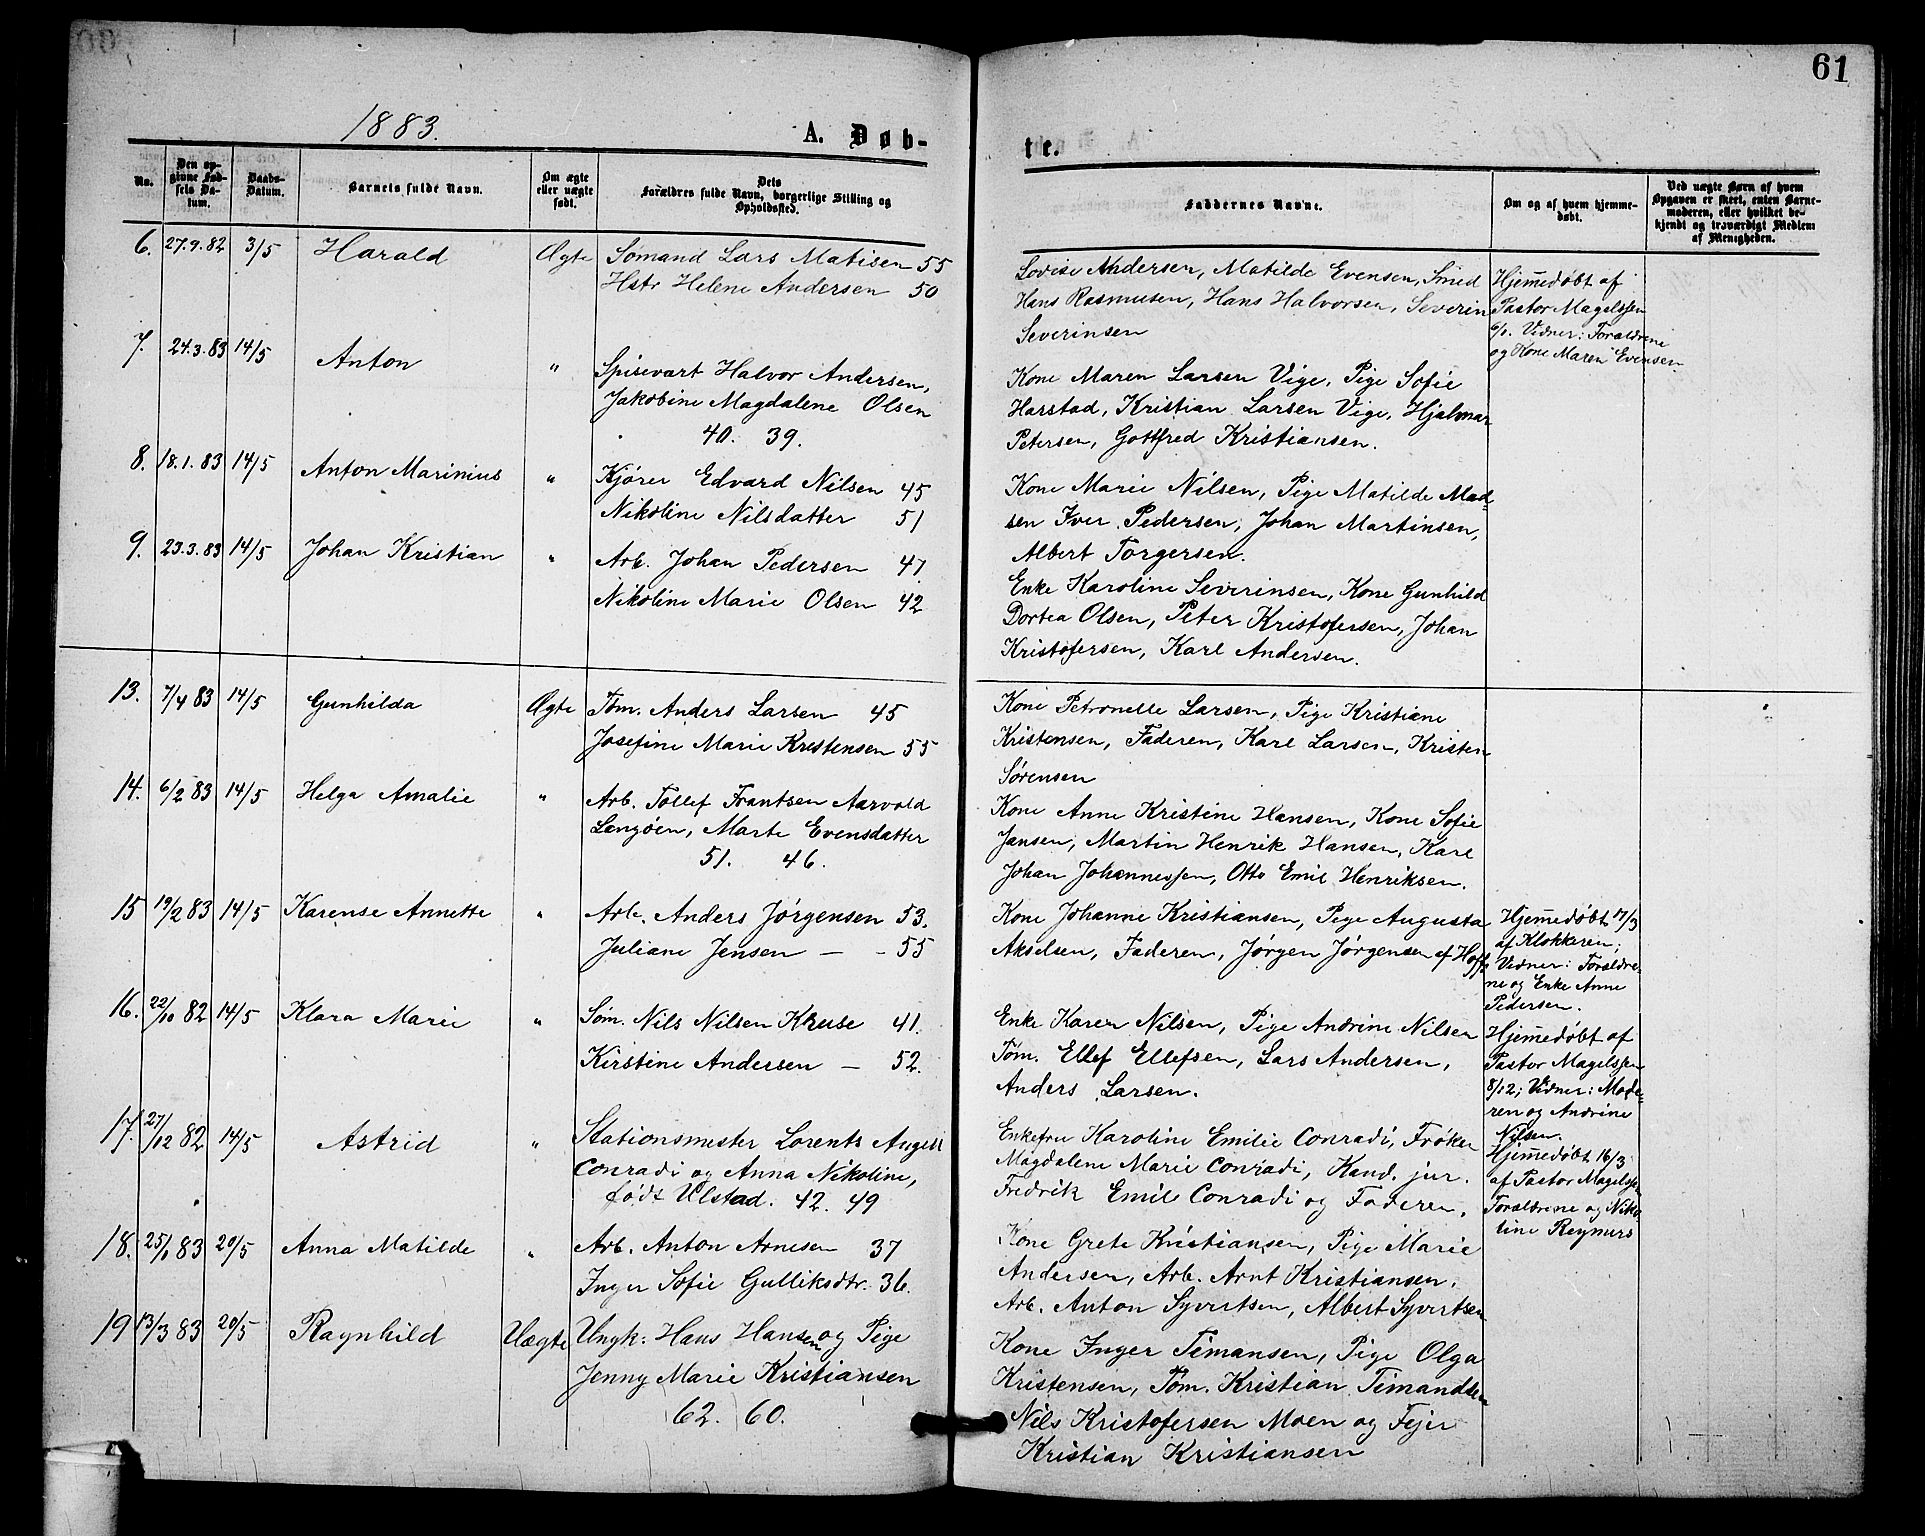 61
1883.
A. Døb-
te.
No.
Den opgivne Fødsels Datum.
Daabs-Datum.
Barnets fulde Navn.
Om ægte eller uægte født.
Dets Forældres fulde Navn, borgerlige Stilling og Opholdssted.
Faddernes Navne.
Om og af hvem hjemmedøbt.
Ved uægte Børn af hvem Opgaven er skeet, enten Barnemoderen, eller hvilket bekjendt og troværdigt Medlem af Menigheden.
6. 27.9.82 3/5 Harald Ægte Sømand Lars Matisen 55
Hstr Helene Andersen 50
Lovise Andersen, Matilde Evensen, Smed
Hans Rasmusen, Hans Halvorsen, Severin
Severinsen
Hjemmedøbt af
Pastor Magelssen
6/1. Vidner: Forældrene
og Kone Maren Evensen
7. 24.3.83 14/5 Anton " Spisevært Halvor Andersen,
Jakobine Magdalene Olsen
40. 39.
Kone Maren Larsen Vige, Pige Sofie
Harstad, Kristian Larsen Vige, Hjalmar
Petersen, Gottfred Kristiansen.
8. 18.1.83 14/5 Anton Marinius " Kjører Edvard Nilsen 45
Nikoline Nilsdatter 51
Kone Marie Nilsen, Pige Matilde Mad-
sen Iver Pedersen, Johan Martinsen,
Albert Torgersen.
9. 23.3.83 14/5 Johan Kristian " Arb. Johan Pedersen 47
Nikoline Marie Olsen 42
Enke Karoline Severinsen, Kone Gunhild
Dortea Olsen, Peter Kristofersen, Johan
Kristofersen, Karl Andersen.
13. 7/4 83 14/5 Gunhilda Ægte Tøm. Anders Larsen 45
Josefine Marie Krestensen 55
Kone Petronelle Larsen, Pige Kristiane
Kristensen, Faderen, Karl Larsen, Kristen
Sørensen
14. 6/2 83 14/5 Helga Amalie " Arb. Tollef Frantsen Aarvold
Langøen, Marte Evensdatter
51. 46.
Kone Anne Kristine Hansen, Kone Sofie
Jansen, Martin Henrik Hansen, Karl
Johan Johannessen, Otto Emil Henriksen.
15 19/2 83 14/5 Karense Annette " Arb. Anders Jørgensen 53.
Juliane Jensen — - 55
Kone Johanne Kristiansen, Pige Augusta
Akselsen, Faderen, Jørgen Jørgensen af Hoff
Hjemmedøbt 17/3
af Klokkeren;
Vidner: Forældre-
ne og Enke Anne
Pedersen.
16. 22/10 82 14/5 Klara Marie " Søm. Nils Nilsen Kruse 41.
Kirstine Andersen — 52.
Enke Karen Nilsen, Pige Andrine Nilsen
Tøm. Ellef Ellefsen, Lars Andersen,
Anders Larsen.
Hjemmedøbt af
Pastor Magelssen
8/12; Vidner: Mode-
ren og Andrine
Nilsen.
17. 27/12 82 14/5 Astrid " Stationsmester Lorentz Angell
Conradi og Anna Nikoline,
født Ulstad. 42. 49
Enkefru Karoline Emilie Conradi, Frøken
Magdalene Marie Conradi, Kand. jur.
Fredrik Emil Conradi og Faderen.
Hjemmedøbt 16/3
af Pastor Magelssen
Forældrene og Niko-
line Reymers
18. 25/1 83 20/5 Anna Matilde " Arb. Anton Arnesen 37
Inger Sofie Gulliksdtr. 36.
Kone Grete Kristiansen, Pige Marie
Andersen, Arb. Arnt Kristiansen,
Arb. Anton Syvertsen, Albert Syvertsen
19 13/3 83 20/5 Ragnhild Uægte Ungk: Hans Hansen og Pige
Jenny Marie Kristiansen
62. 60.
Kone Inger Timansen, Pige Olga
Kristensen, Tøm. Kristian Timandsen
Nils Kristofersen Moen og Fejer
Kristian Kristiansen